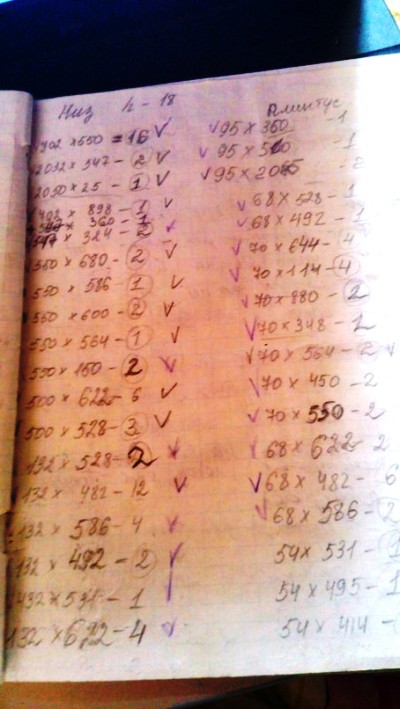 Низ h - 18
702 × 550 = 16 ✓
2032 × 347 - 2 ✓
2030 × 25 - 1 ✓
702 × 898 - 1 ✓
360 - 1
× 324 - 2 ✓
550 × 680 - 2 ✓
550 × 586 - 1 ✓
550 × 600 - 2 ✓
550 × 564 - 1 ✓
550 × 150 - 2 ✓
500 × 622 - 6 ✓
500 × 528 - 3 ✓
192 × 528 - 2 ✓
132 × 482 - 12 ✓
132 × 586 - 4 ✓
132 × 492 - 2 ✓
432 × 531 - 1
132 × 622 - 4 ✓
Плинтус
✓ 95 × 360 - 1
✓ 95 × 516 - 1
✓ 95 ×
68 × 528 - 1
✓ 68 × 492 - 1
✓ 70 × 644 - 4
✓ 70 × 114 - 4
✓ 70 × 880 - 2
✓ 70 × 348 - 2
✓ 70 × 564 - 2 ✓
✓ 70 × 450 - 2
✓ 70 × 550 - 2
✓ 68 × 622 - 2
✓ 68 × 482 - 6
✓ 68 × 586 - 2
54 × 531 - 1
54 × 495 - 1
54 × 414 -